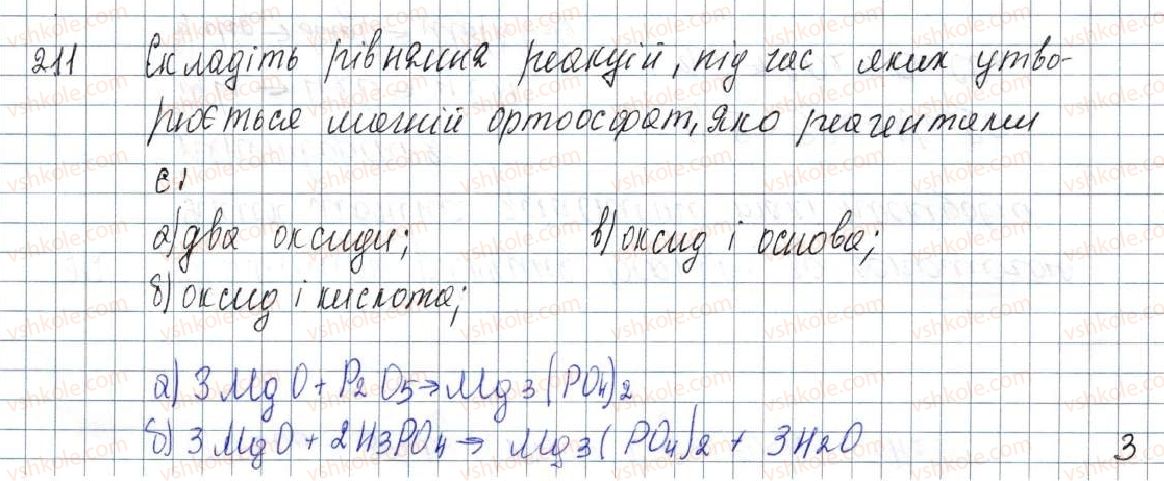 211 Складіть рівняння реакцій, під час яких утво-
рюється магній ортоосфат, яко реагентами
є:
а) два оксиди; в) оксид і основа;
б) оксид і кислота;
а) 3MgO + P2O5 → Mg3(PO4)2
б) 3MgO + 2H3PO4 → Mg3(PO4)2 + 3H2O
3